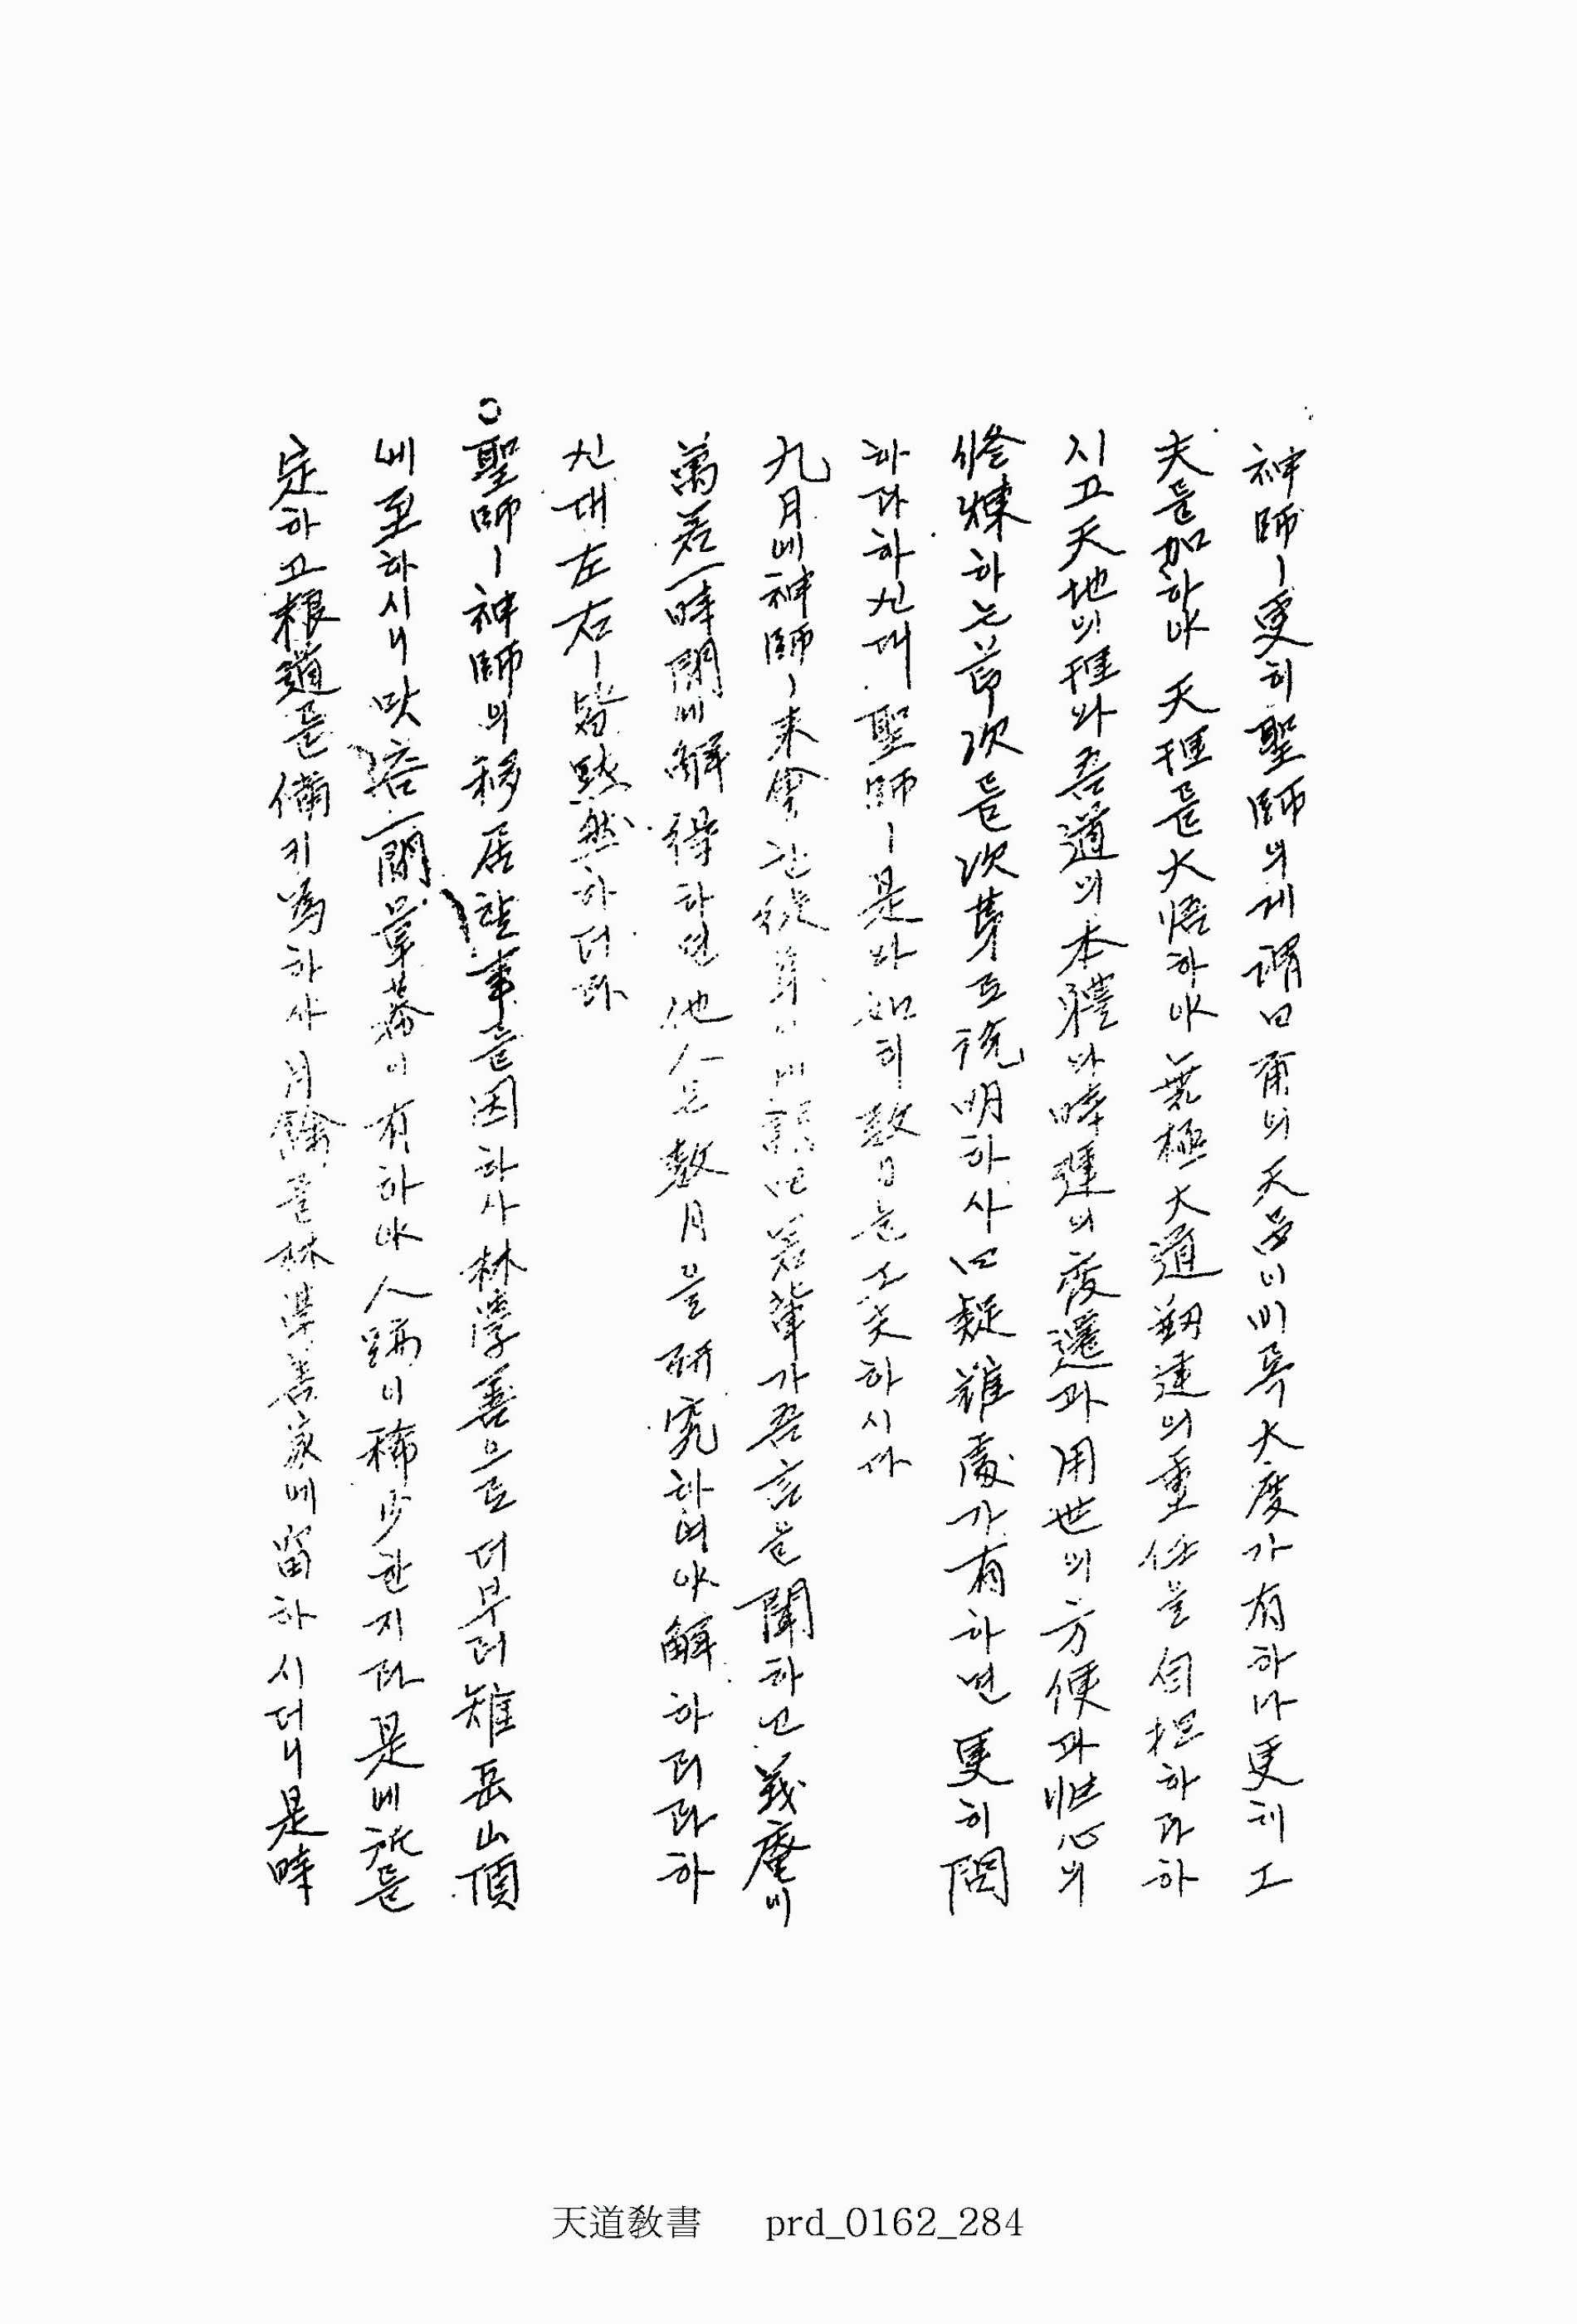 神師ㅣ更히聖師의게謂曰爾의天品이비록大度가有하나更히工
夫를加하야天理를大悟하야無極大道刱建의重任을自担하라하
시고天地의理와吾道의本體와時運의變遷과用世의方便과性心의
修煉하는節次를次第로說明하사曰疑難處가有하면更히問
하라하신대聖師ㅣ是와如히數日을工夫하시다
九月에神師ㅣ來會한徒弟에게謂曰若輩가吾言을聞하고義菴이
萬若一時間에解得하면他人은數月을硏究하여야解하리라하
신대左右ㅣ皆默然하더라
○聖師ㅣ神師의移居할事를因하사林淳善으로더부러雉岳山頂
에至하시니一間草幕이有하야人跡이稀少한지라是에
定하고根道를備키爲하사月餘를林淳善家에留하시더니是時
天道敎書 prd_0162_284